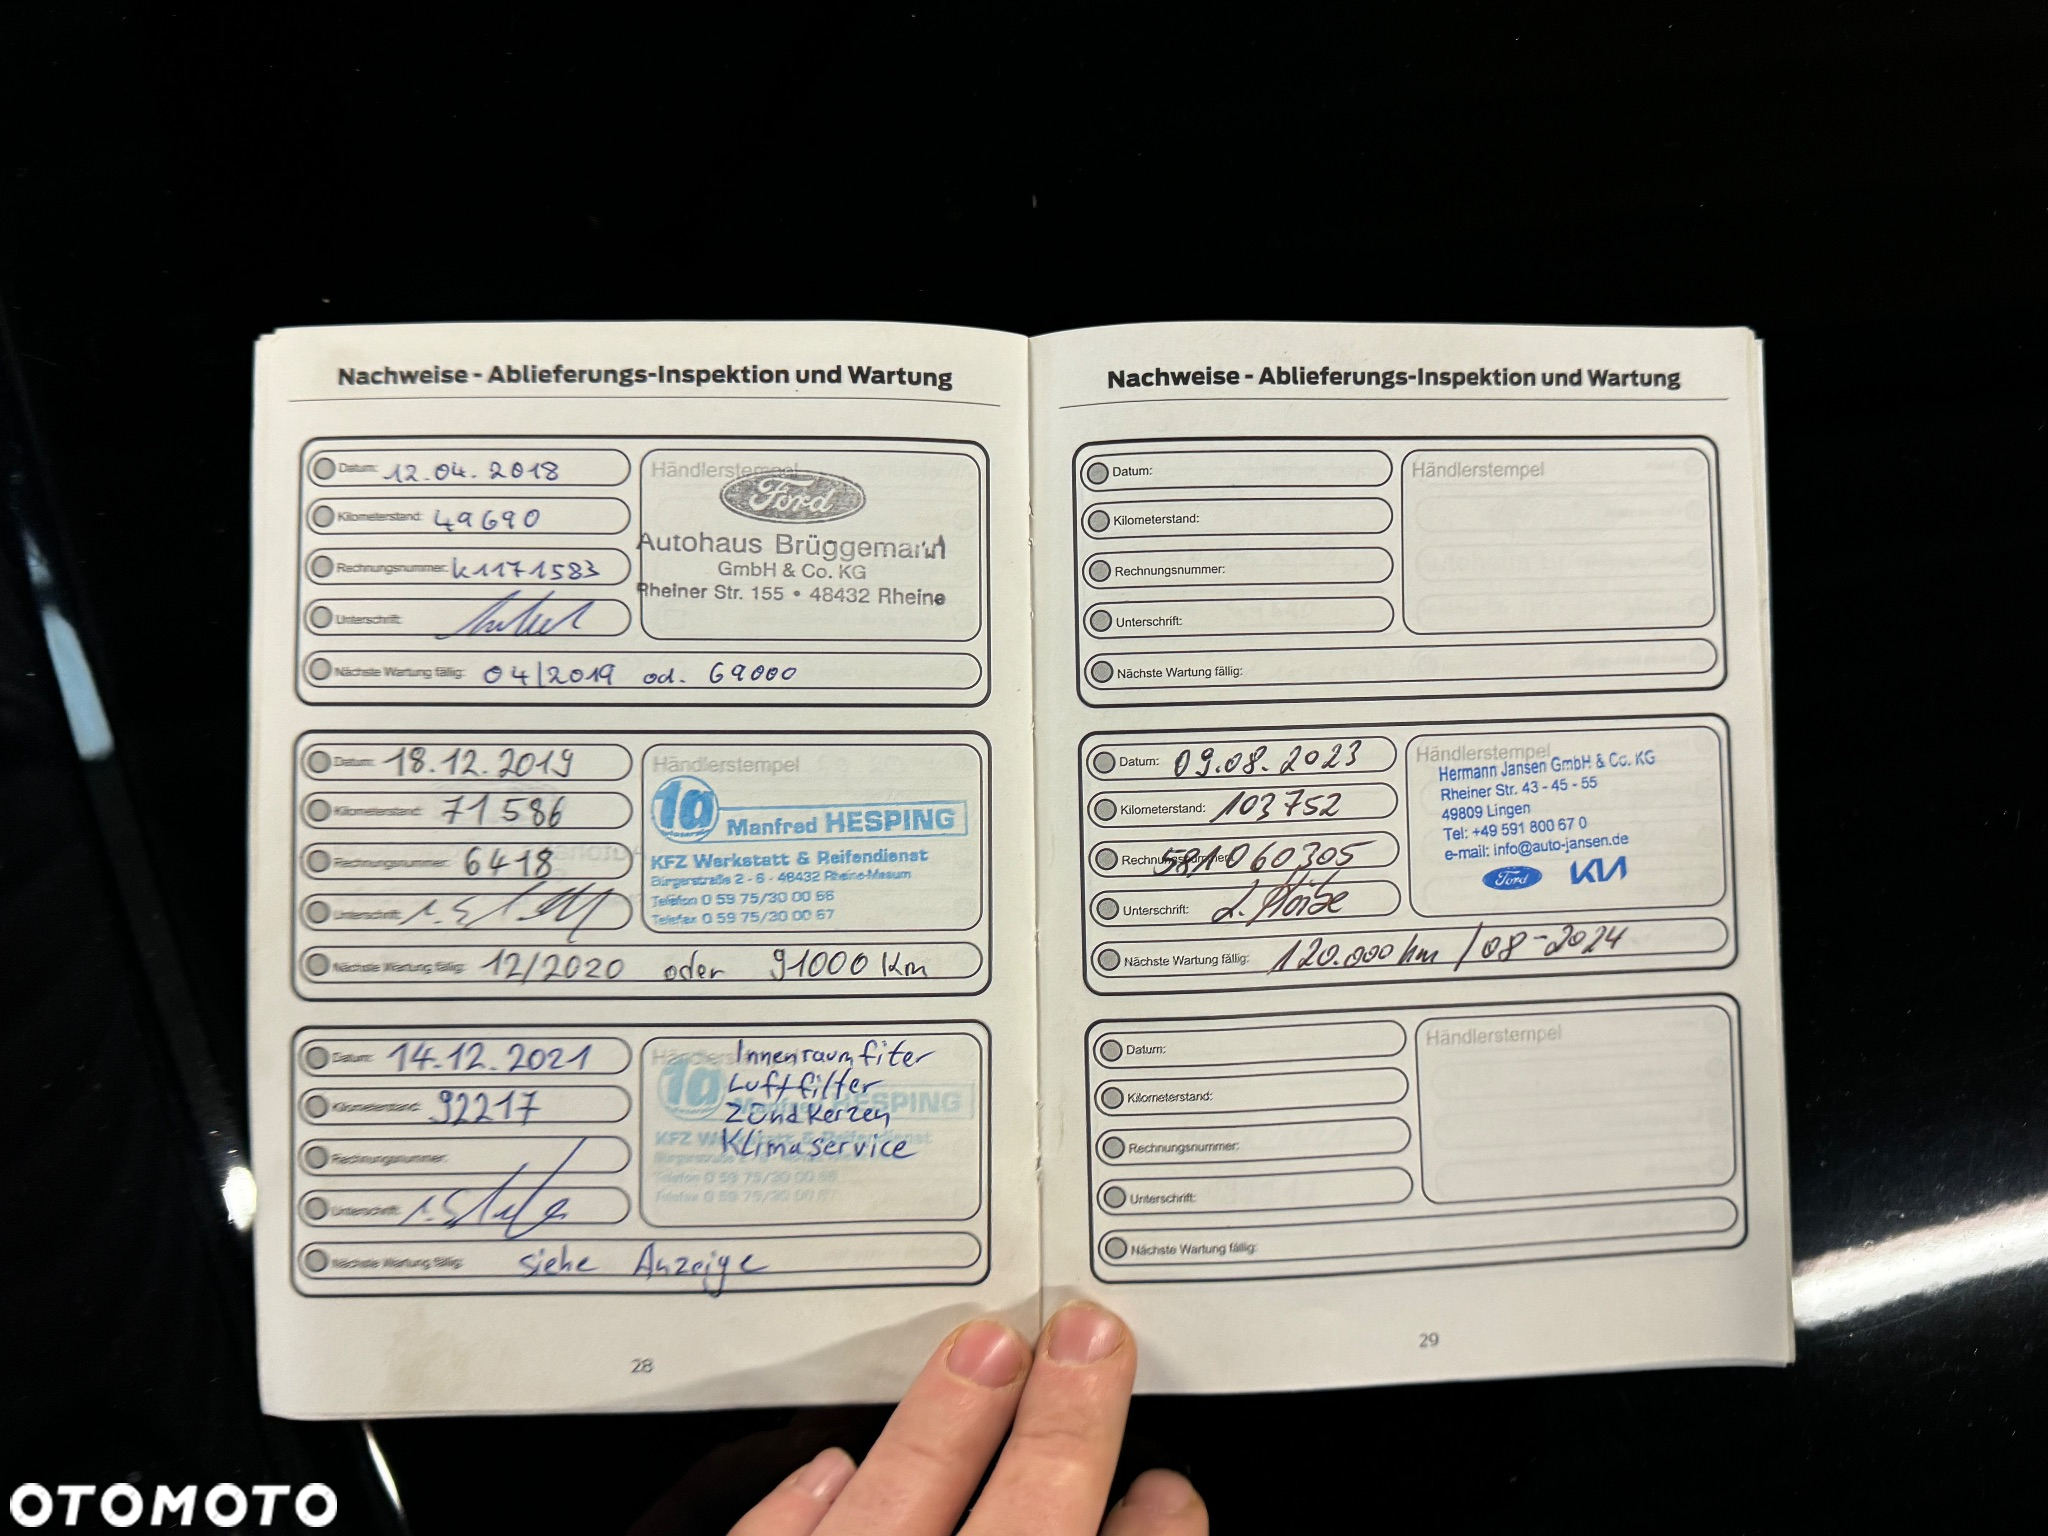 Nachweise - Ablieferungs-Inspektion und Wartung
Datum: 12.04.2018
Kilometerstand: 49690
Rechnungsnummer: K1171583
Unterschrift:
Nächste Wartung fällig: 04/2019 od. 69000
Händlerstempel
Ford
Autohaus Brüggemann
GmbH & Co. KG
Rheiner Str. 155 • 48432 Rheine
Datum: 18.12.2019
Kilometerstand: 71586
Rechnungsnummer: 6418
Unterschrift:
Nächste Wartung fällig: 12/2020 oder 91000 Km
Händlerstempel
1a
Manfred HESPING
KFZ Werkstatt & Reifendienst
Bürgerstraße 2 - 6 - 48432 Rheine-Mesum
Telefon 0 59 75/30 00 66
Telefax 0 59 75/30 00 67
Datum: 14.12.2021
Kilometerstand: 92217
Rechnungsnummer:
Unterschrift:
Nächste Wartung fällig: siehe Anzeige
Innenraumfiter
Luftfilter
Zündkerzen
Klimaservice
1a
Manfred HESPING
KFZ Werkstatt & Reifendienst
Telefon 0 59 75/30 00 66
Telefax 0 59 75/30 00 67
28
Nachweise - Ablieferungs-Inspektion und Wartung
Datum:
Kilometerstand:
Rechnungsnummer:
Unterschrift:
Nächste Wartung fällig:
Händlerstempel
Datum: 09.08.2023
Kilometerstand: 103752
Rechnungsnummer: 581060305
Unterschrift:
Nächste Wartung fällig: 120.000 km / 08-2024
Händlerstempel
Hermann Jansen GmbH & Co. KG
Rheiner Str. 43 - 45 - 55
49809 Lingen
Tel: +49 591 800 67 0
e-mail: info@auto-jansen.de
Ford KIA
Datum:
Kilometerstand:
Rechnungsnummer:
Unterschrift:
Nächste Wartung fällig:
Händlerstempel
29
OTOMOTO